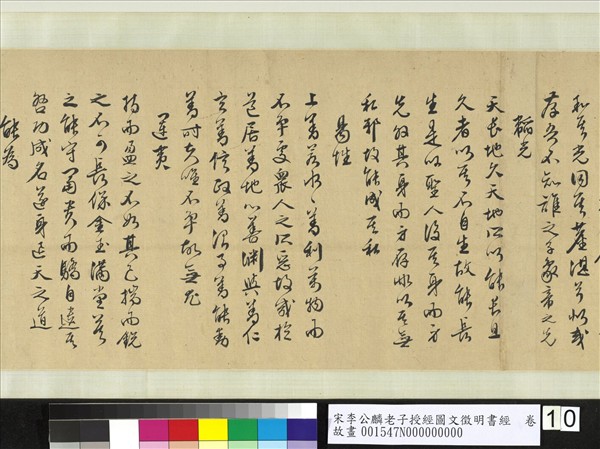 和其光同其塵湛兮似或
存吾不知誰之子象帝之先
韜光
天長地久天地所以能長且
久者以其不自生故能長
生是以聖人後其身而身
先外其身而身存非以其無
私耶故能成其私
易性
上善若水水善利萬物而
不爭處衆人之所惡故幾於
道居善地心善淵與善仁
言善信政善治事善能動
善時夫唯不爭故無尤
運夷
持而盈之不如其已揣而銳
之不可長保金玉滿堂莫
之能守富貴而驕自遺其
咎功成名遂身退天之道
能為
宋李公麟老子授經圖文徵明書經 卷
故畫 001547N000000000
10